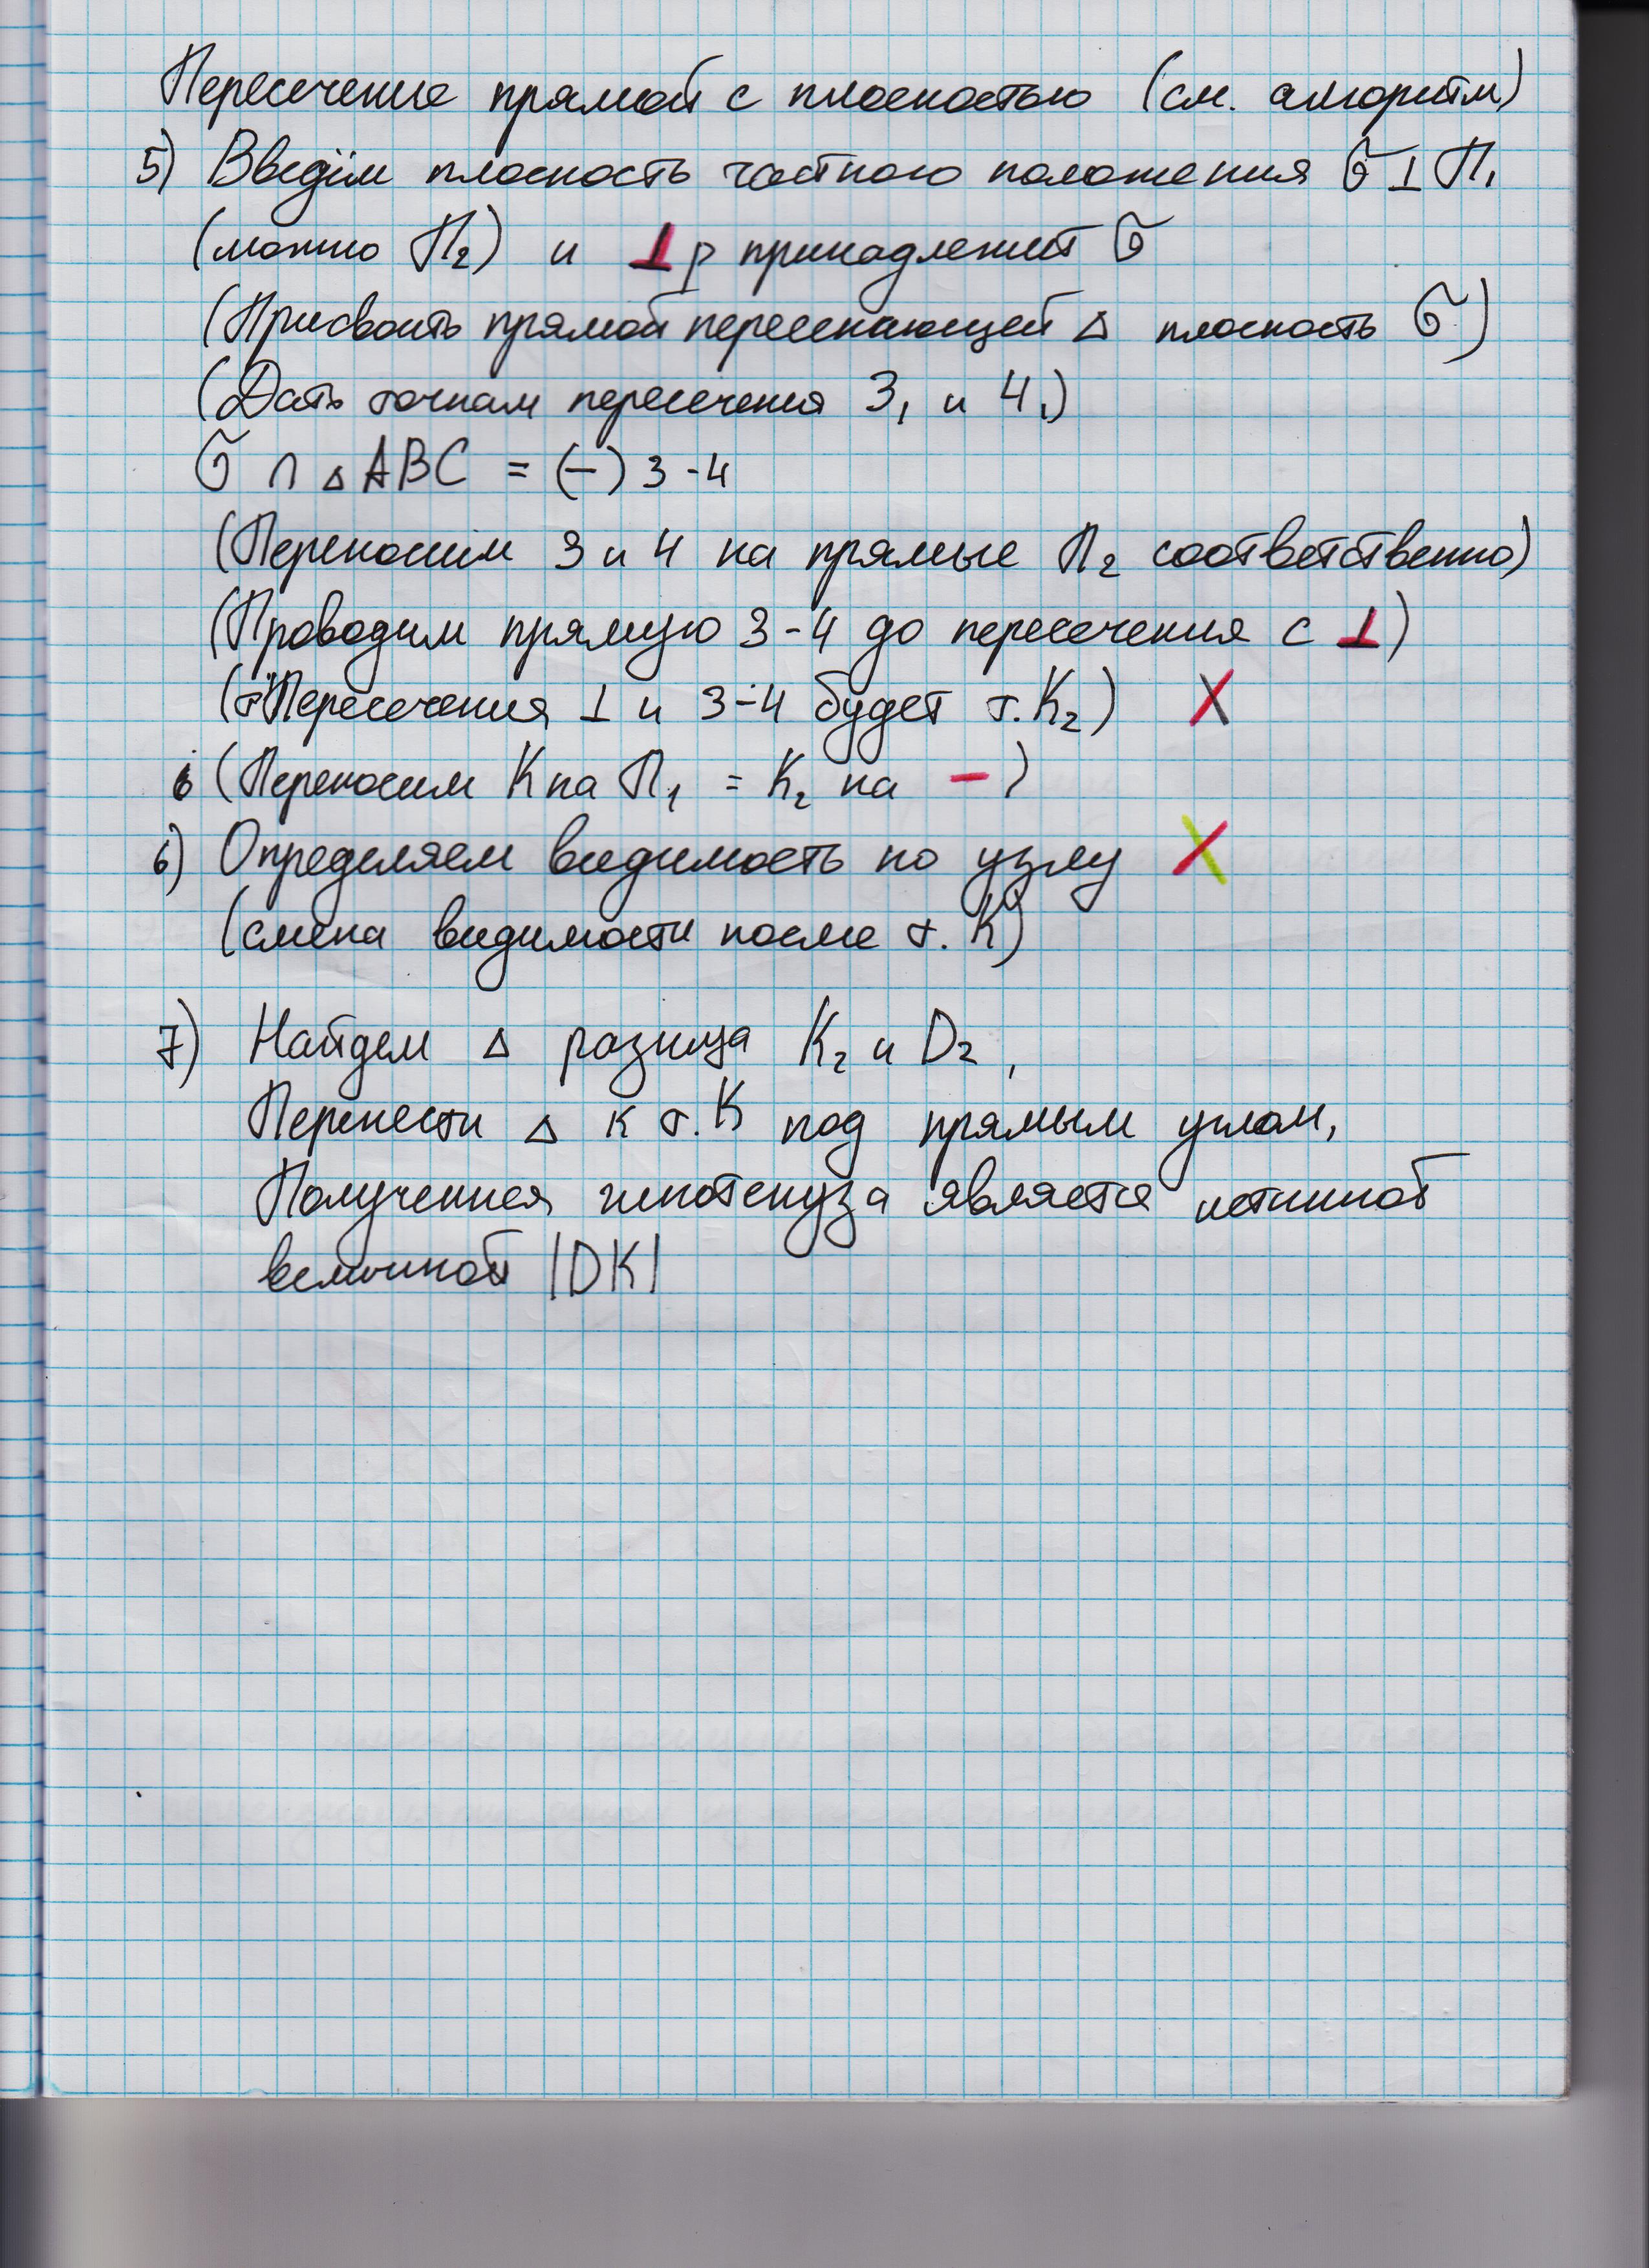 Пересечение прямой с плоскостью (см. алгоритм)
5) Введём плоскость частного положения σ ⊥ П₁
(можно П₂) и ⊥ p принадлежит σ
(Присвоить прямой пересекающей △ плоскость σ)
(Дать точкам пересечения 3₁ и 4₁)
σ ∩ △ABC = (—) 3-4
(Переносим 3 и 4 на прямые П₂ соответственно)
(Проводим прямую 3-4 до пересечения с ⊥)
(т Пересечения ⊥ и 3-4 будет т. K₂)
(Переносим K на П₁ = K₂ на —)
6) Определяем видимость по узлу
(смена видимости после т. K)
7) Найдем △ разница K₂ и D₂,
Перенести △ к т. K под прямым углом,
Полученная гипотенуза является истиной
величиной |DK|